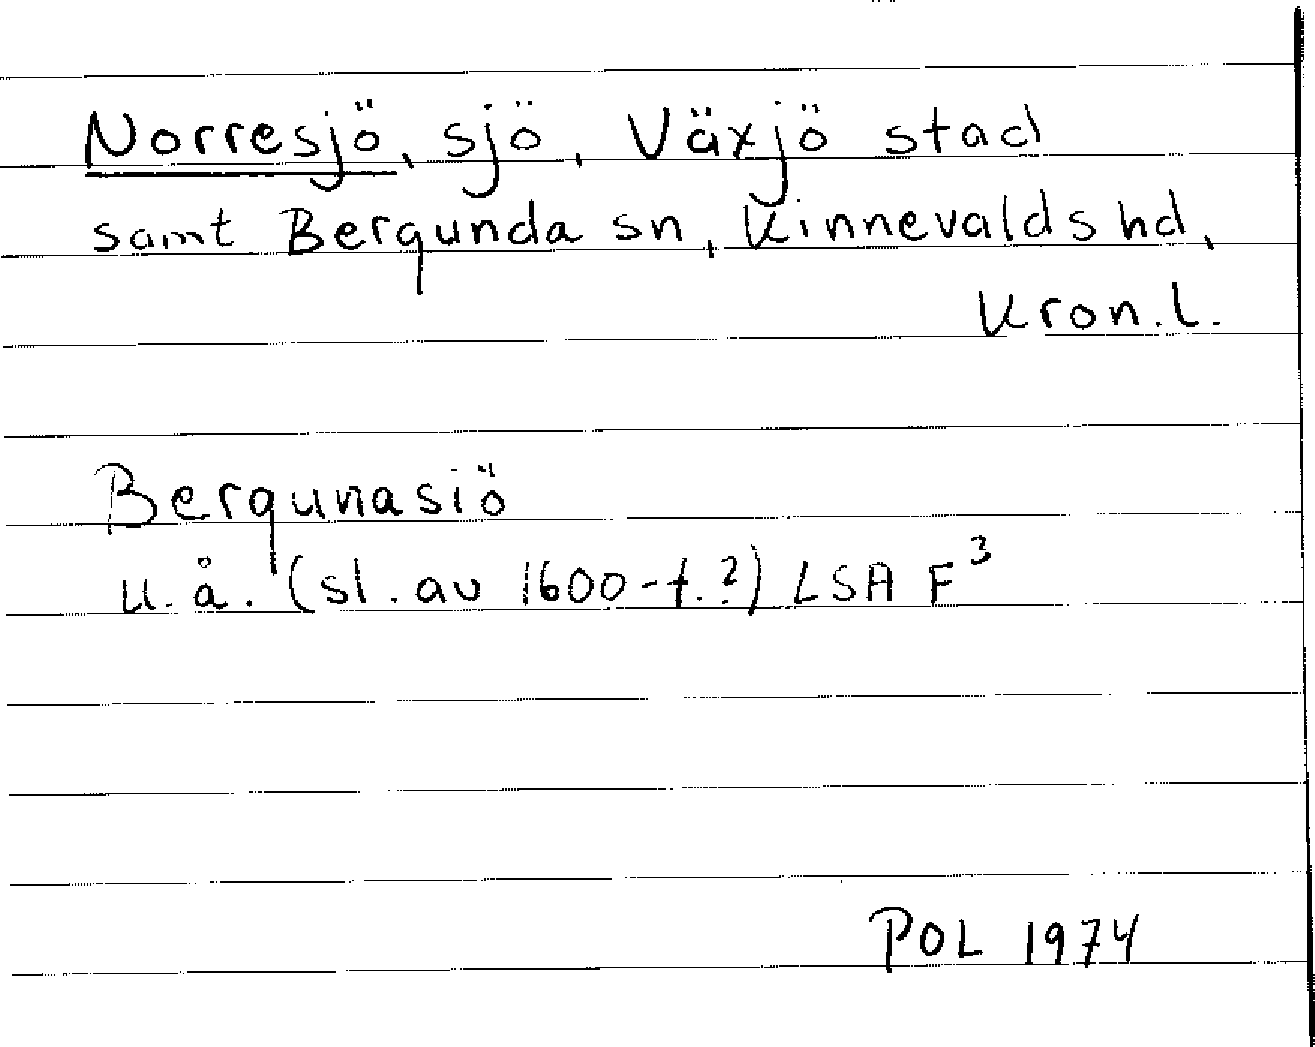 Norresjö, sjö, Växjö stad
samt Bergunda sn, Kinnevalds hd,
Kron. l.
Bergunasiö
u. å. (sl. av 1600-t.?) LSA F³
POL 1974